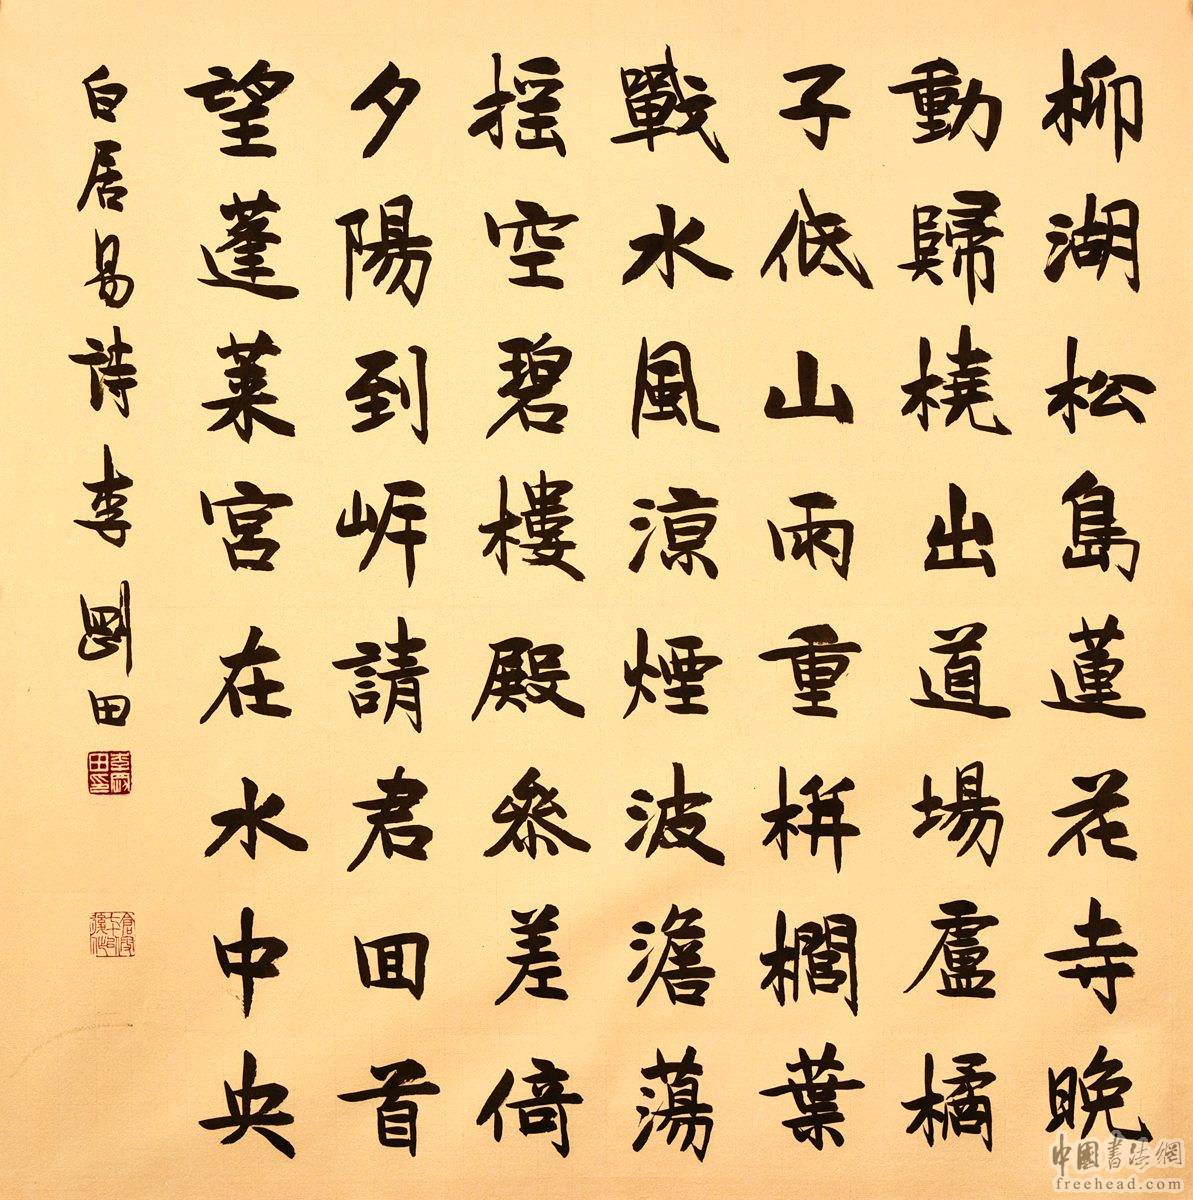 柳湖松島蓮花寺晚
動歸橈出道場盧橘
子低山雨重栟櫚葉
戰水風涼煙波澹蕩
搖空碧樓殿參差倚
夕陽到岸請君回首
望蓬萊宮在水中央
白居易詩李剛田
李剛田印
中國書法網
freehead.com